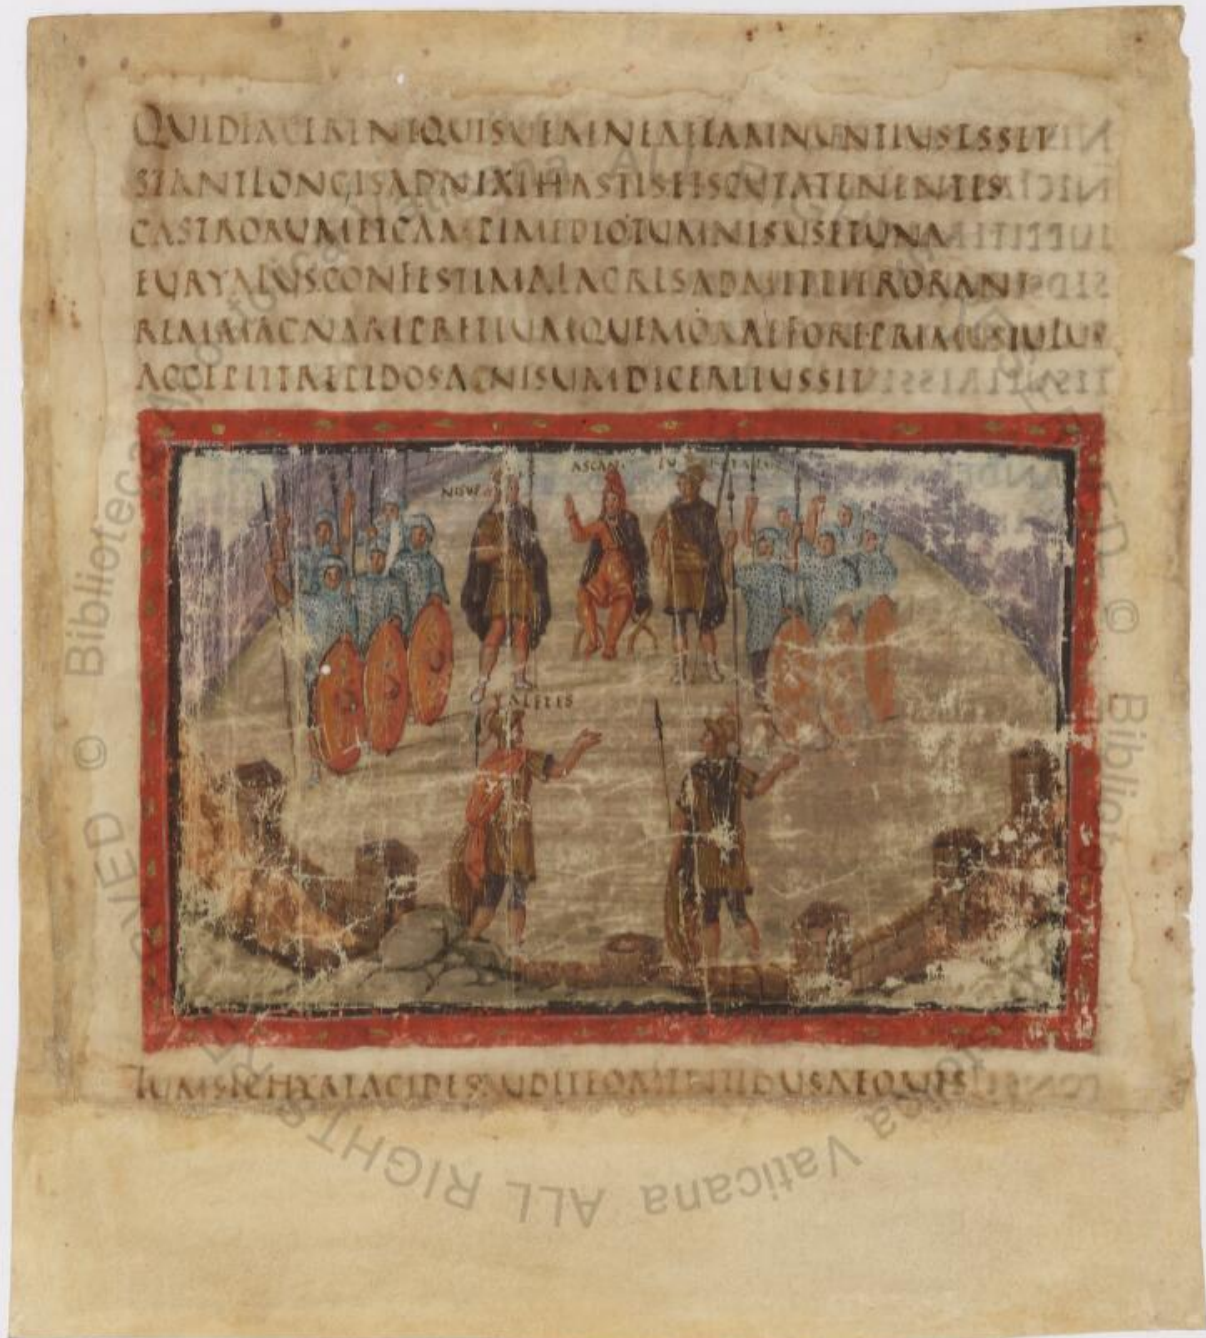 QUIDFACERENTQUISUEAENEAEIAMNUNTIUSESSET
STANTLONGISADNIXIHASTISETSCUTATENENTES
CASTRORUMETCAMPIMEDIOTUMNISUSETUNA
EURYALUSCONFESTIMALACRISADMITTIERORANT
REMMAGNAMPRETIUMQUEMORAEFOREPRIMUSIULUS
ACCEPITTREPIDOSACNISUMDICEREIUSSIT
NISUS
ASCANI
TUMSICHYRTACIDESAUDITEOMENTIBUSAEQUIS
© Biblioteca Apostolica Vaticana ALL RIGHTS RESERVED